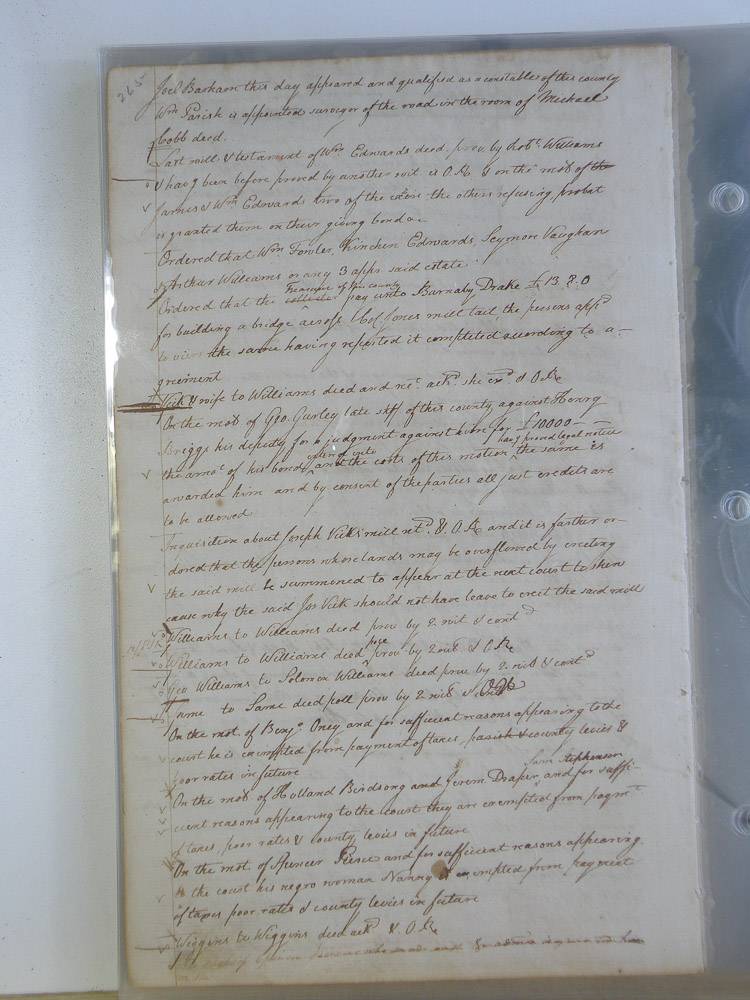 265
Joel Barham this day appeared and qualified as a constable of this county
Wm Parish is appointed surveyor of the road in the room of Michael
Cobb deed.
Last will & testament of Wm Edwards deed. prov by Robt. Williams
& havg been before proved by another wit is O.R. & on the mot of the
James & Wm Edwards two of the exors the others refusing, probat
is granted them on their giving bond &c
Ordered that Wm Fowler, Kinchen Edwards, Seymon Vaughan
& Arthur Williams or any 3 appr said estate
Treasurer of this county
Ordered that the pay unto Barnaby Drake £13.8.0
for building a bridge across Col. Jones mill tail, the persons appd
to view the same having reported it completed according to a-
greement
Vick & wife to Williams deed and re. ackd. she exd. & O.R.
On the mot of Geo. Gurley late shff of this county against Henry
Briggs his deputy for a judgment against him for £10000-
entered into havg proved legal notice
the amot of his bond and the costs of this motion the same is
awarded him and by consent of the parties all just credits are
to be allowed
Inquisition about Joseph Vicks mill retd. & O.R. and it is farther or-
dered that the persons whose lands may be overflowed by erecting
the said mill be summoned to appear at the next court to shew
cause why the said Jos Vick should not have leave to erect the said mill
Williams to Williams deed prov by 2 wit & contd
Williams to Williams deed prov by 2 wit & O.R.
Geo Williams to Solomon Williams deed prov by 2 wit & contd
Same to Same deed poll prov by 2 wit &
On the mot of Benja. Oney and for sufficient reasons appearing to the
court he is exempted from payment of taxes, parish & county levies &
poor rates in future
Sam Stephenson
On the mot of Holland Birdsong and Jerem Draper and for suffi-
cient reasons appearing to the court they are exempted from paymt
of taxes, poor rates & county levies in future
On the mot of Spencer Pierce and for sufficient reasons appearing
to the court his negro woman Nanny is exempted from payment
of taxes poor rates & county levies in future
Wiggins to Wiggins deed ackd & O.R.